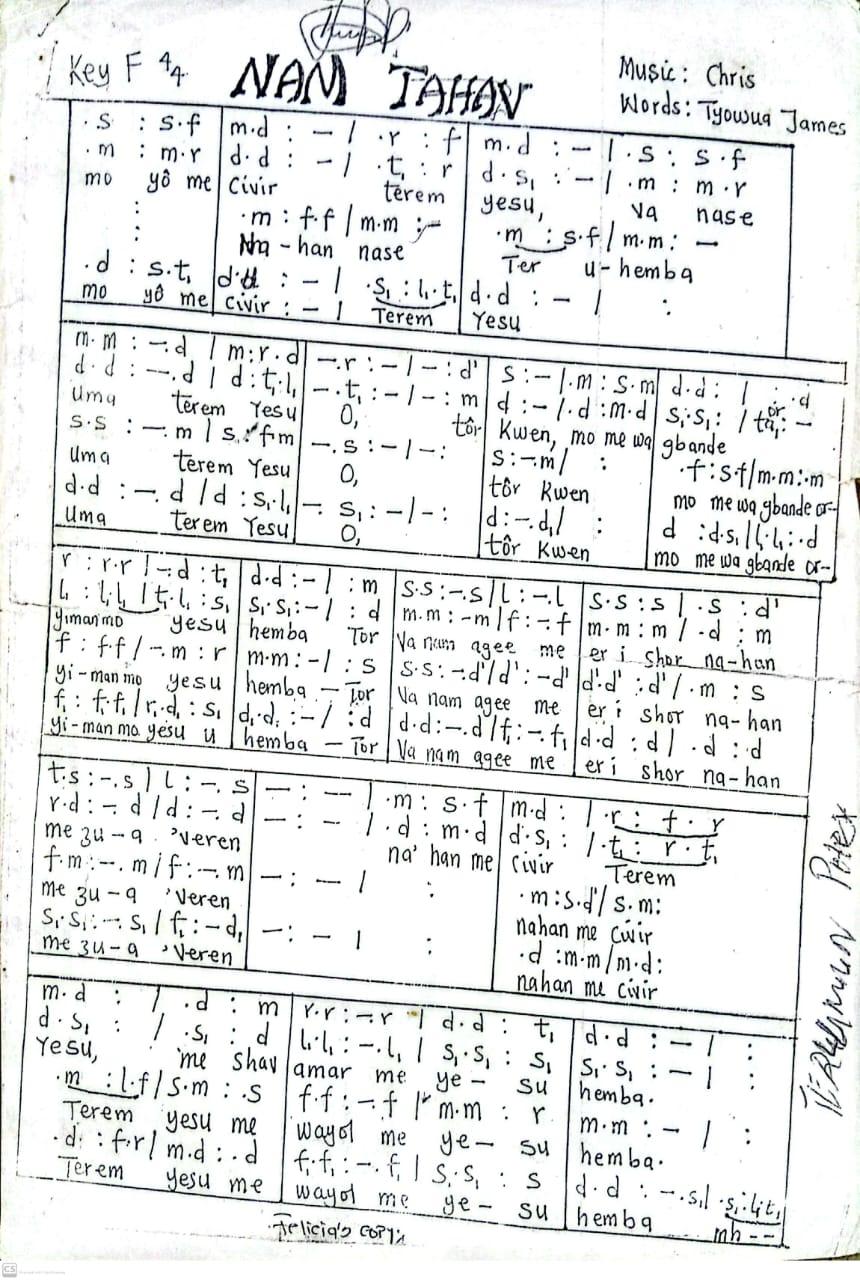 Key F 4/4
NAM TAHAV
Music: Chris
Words: Tyowua James
.s : s.f | m.d : – / .r : f | m.d : – / .s : s.f
.m : m.r | d.d : – / .t₁ : r | d.s₁ : – / .m : m.r
mo yô me | civir terem | yesu, va nase
: | .m : f.f / m.m :– | .m : s.f / m.m : –
: | Na-han nase | Ter u-hemba
.d : s.t₁ | : – / .s₁ : l₁.t₁ | d.d : – / :
mo yô me | civir : – / Terem | Yesu
m.m : –.d / m:r.d | –.r : – / – : d' | s : – /.m : s.m | d.d : / : .d
d.d : –.d / d : t₁.l₁ | –.t₁ : – / – : m | d : – /.d : m.d | s₁.s₁ : /
uma terem Yesu | O, tôr | Kwen, mo me wa | gbande or
s.s : –.m / s : fm | –.s : – / – : | s : –.m / : | .f : s.f / m.m : .m
uma terem Yesu | O, | tôr Kwen | mo me wa gbande or-
d.d : –.d / d : s₁.l₁ | –. s₁ : – / – : | d : –.d₁ / : | d : d.s₁ / l₁.l₁ : .d
uma terem Yesu | O, | tôr Kwen | mo me wa gbande or-
r : r.r / –.d : t₁ | d.d : – / : m | s.s : –.s / l : –.l | s.s : s / .s : d'
l₁ : l₁.l₁ / t₁.l₁ : s₁ | s₁.s₁ : – / : d | m.m : –m / f : –.f | m.m : m / .d : m
yiman mo yesu | hemba Tor | Va nam agee me | er i shor na-han
f : f.f / –.m : r | m.m : – / : s | s.s : –.d' / d' : –d' | d'.d' : d' / .m : s
yi-man mo yesu | hemba – Tor | Va nam agee me | er i shor na-han
f₁ : f₁.f₁ / r₁.d₁ : s₁ | d₁.d₁ : – / : d | d.d : –.d / f₁ : –.f₁ | d.d : d / .d : d
yi-man mo yesu u | hemba – Tor | Va nam agee me | er i shor na-han
t.s : –.s / l : –. s | – : – / .m : s.f | m.d : / .r : f.r
r.d : –. d / d : –. d | – : – / .d : m.d | d.s₁ : / .t₁ : r.t₁
me zu-a 'veren | na' han me | civir Terem
f.m : –. m / f : –. m | – : – / : | .m : s.d' / s.m :
me zu-a 'veren | nahan me civir
s₁.s₁ : –. s₁ / f₁ : –d₁ | – : – / : | .d : m.m / m.d :
me zu-a 'veren | nahan me civir
m.d : / .d : m | r.r : –r / d.d : t₁ | d.d : – / :
d.s₁ : / .s₁ : d | l₁.l₁ : –.l₁ / s₁.s₁ : s₁ | s₁.s₁ : – / :
Yesu, me shav | amar me ye- su | hemba.
.m : l.f / s.m : .s | f.f : –f / m.m : r | m.m : – / :
Terem yesu me | wayol me ye- su | hemba.
.d : f.r / m.d : .d | f₁.f₁ : –.f₁ / s₁.s₁ : s | d.d : –.s₁ / .s₁ : l₁.t₁
Terem yesu me | wayol me ye- su | hemba mh--
Felicia's copy
CS